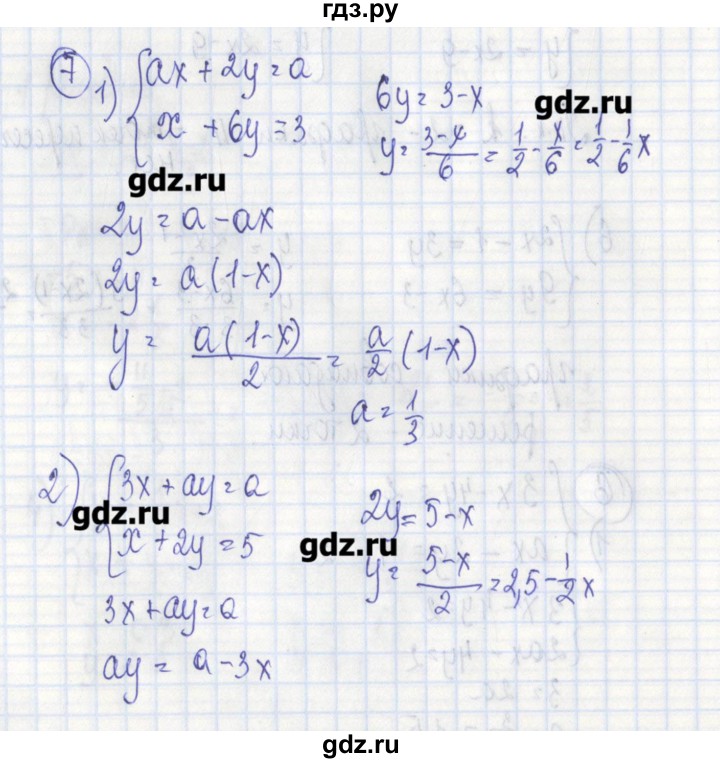 гдз.ру
7 1) { ax + 2y = a
x + 6y = 3
6y = 3 - x
y = (3-x)/6 = 1/2 - x/6 = 1/2 - 1/6 x
gdz.ru
gdz.ru
2y = a - ax
2y = a(1-x)
y = a(1-x)/2 = a/2 (1-x)
a = 1/3
2) { 3x + ay = a
x + 2y = 5
gdz.ru
2y = 5 - x
gdz.ru
y = (5-x)/2 = 2,5 - 1/2 x
3x + ay = a
ay = a - 3x
gdz.ru